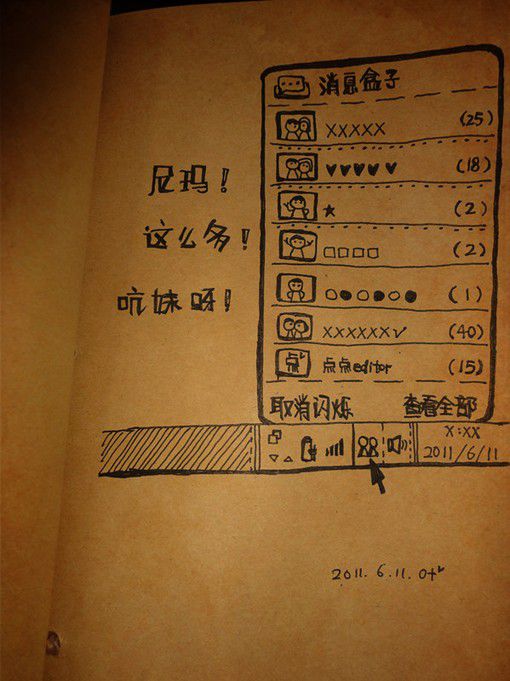 消息盒子
XXXXX (25)
♥♥♥♥♥ (18)
尼玛！
★ (2)
这么多！
□□□□ (2)
坑妹呀！
○●○●○● (1)
XXXXXX√ (40)
点 点点editor (15)
取消闪烁 查看全部
X:XX
2011/6/11
2011. 6. 11.